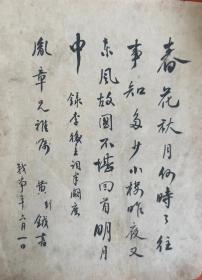 春花秋月何時了往
事知多少小樓昨夜又
東風故國不堪回首明月
中 錄李後主詞李闕應
胤章兄雅屬 黃
年六月一日